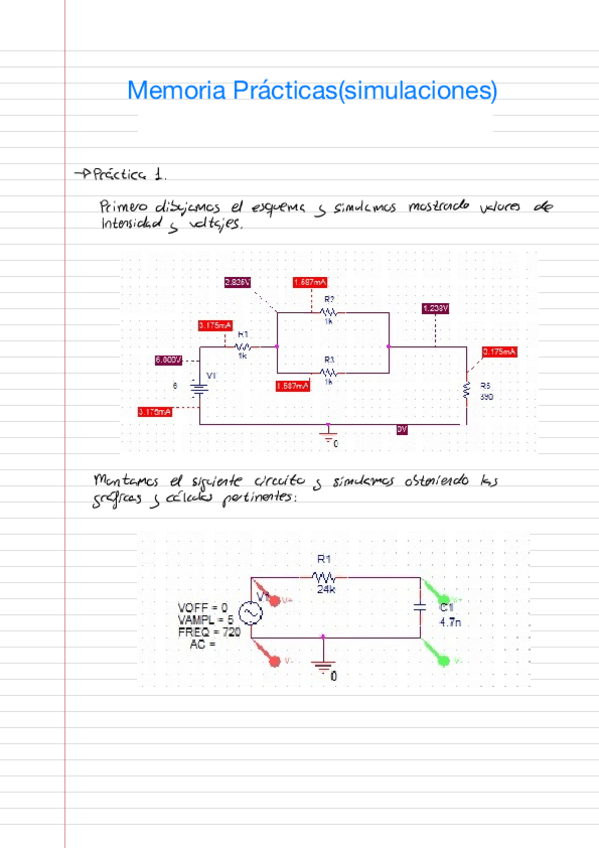 Memoria Prácticas(simulaciones)
→Práctica 1.
Primero dibujamos el esquema y simulamos mostrando valores de
Intensidad y voltajes.
2.825V
1.587mA
R2
1k
1.238V
3.175mA
R1
1k
3.175mA
6.000V
V1
6
R3
1k
1.587mA
R5
390
3.175mA
0V
0
Montamos el siguiente circuito y simulamos obteniendo las
gráficas y cálculos pertinentes:
R1
24k
V+
VOFF = 0
VAMPL = 5
FREQ = 720
AC =
C1
4.7n
V-
V-
0